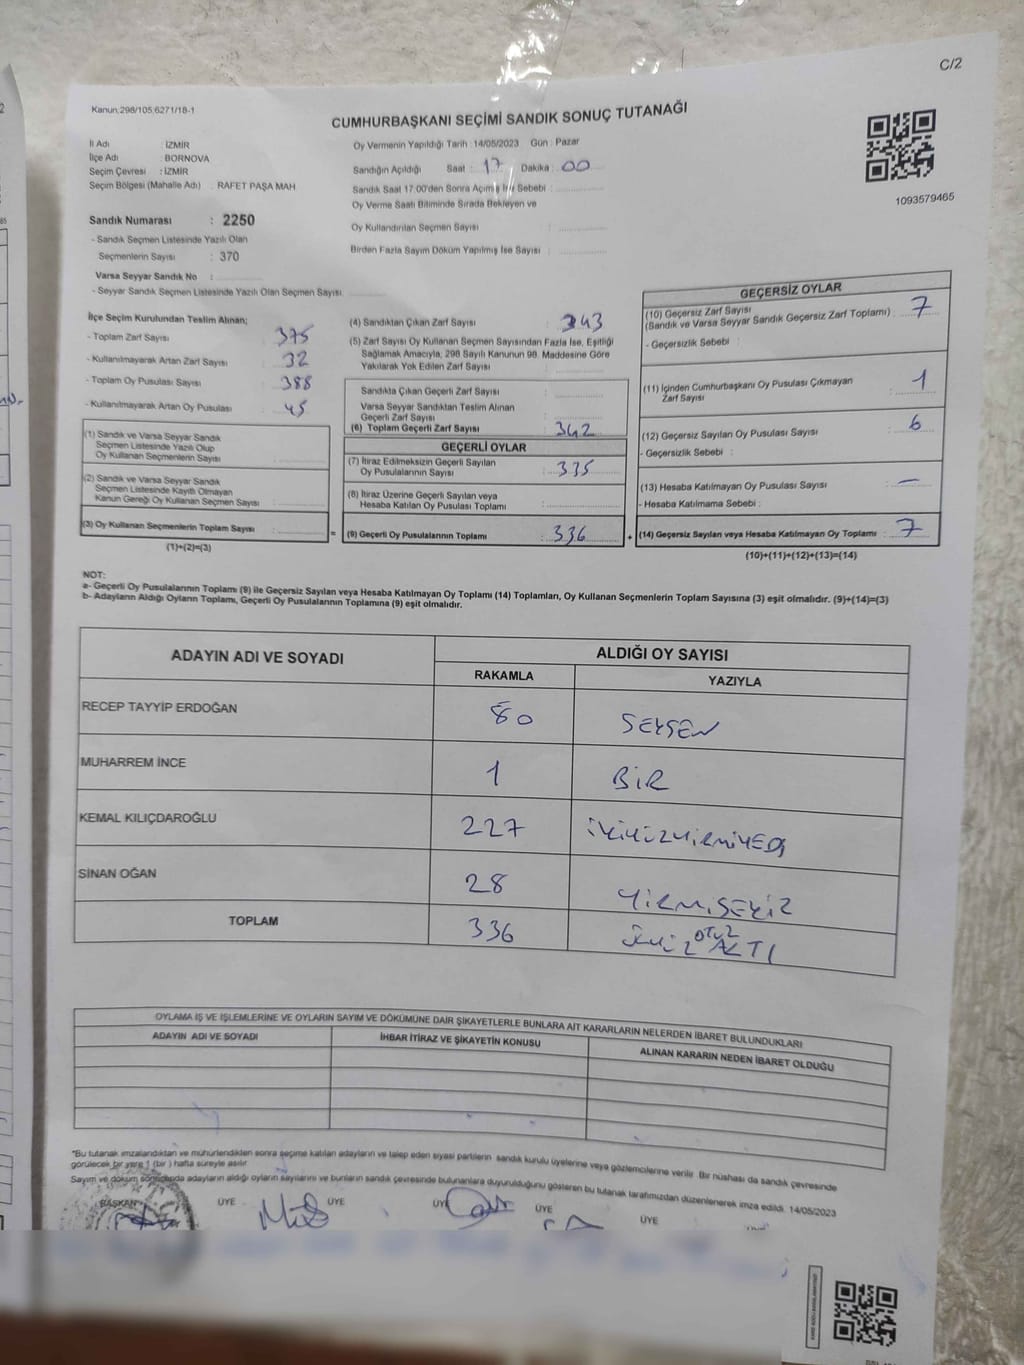 C/2
Kanun:298/105;6271/18-1
CUMHURBAŞKANI SEÇİMİ SANDIK SONUÇ TUTANAĞI
İl Adı : İZMİR
İlçe Adı : BORNOVA
Seçim Çevresi : İZMİR
Seçim Bölgesi (Mahalle Adı) : RAFET PAŞA MAH
Sandık Numarası : 2250
- Sandık Seçmen Listesinde Yazılı Olan
Seçmenlerin Sayısı : 370
Varsa Seyyar Sandık No :
- Seyyar Sandık Seçmen Listesinde Yazılı Olan Seçmen Sayısı
Oy Vermenin Yapıldığı Tarih : 14/05/2023 Gün : Pazar
Sandığın Açıldığı Saat : 17 Dakika : 00
Sandık Saat 17:00'den Sonra Açımış İse Sebebi :
Oy Verme Saati Bitiminde Sırada Bekleyen ve
Oy Kullandırılan Seçmen Sayısı :
Birden Fazla Sayım Döküm Yapılmış İse Sayısı :
1093579465
İlçe Seçim Kurulundan Teslim Alınan;
- Toplam Zarf Sayısı : 375
- Kullanılmayarak Artan Zarf Sayısı : 32
- Toplam Oy Pusulası Sayısı : 388
- Kullanılmayarak Artan Oy Pusulası : 45
(1) Sandık ve Varsa Seyyar Sandık
Seçmen Listesinde Yazılı Olup
Oy Kullanan Seçmenlerin Sayısı :
(2) Sandık ve Varsa Seyyar Sandık
Seçmen Listesinde Kayıtlı Olmayan
Kanun Gereği Oy Kullanan Seçmen Sayısı :
(3) Oy Kullanan Seçmenlerin Toplam Sayısı :
(1)+(2)=(3)
(4) Sandıktan Çıkan Zarf Sayısı : 343
(5) Zarf Sayısı Oy Kullanan Seçmen Sayısından Fazla İse, Eşitliği
Sağlamak Amacıyla, 298 Sayılı Kanunun 98. Maddesine Göre
Yakılarak Yok Edilen Zarf Sayısı :
Sandıkta Çıkan Geçerli Zarf Sayısı :
Varsa Seyyar Sandıktan Teslim Alınan
Geçerli Zarf Sayısı :
(6) Toplam Geçerli Zarf Sayısı : 342
GEÇERLİ OYLAR
(7) İtiraz Edilmeksizin Geçerli Sayılan
Oy Pusulalarının Sayısı : 335
(8) İtiraz Üzerine Geçerli Sayılan veya
Hesaba Katılan Oy Pusulası Toplamı :
= (9) Geçerli Oy Pusulalarının Toplamı : 336
GEÇERSİZ OYLAR
(10) Geçersiz Zarf Sayısı : 7
(Sandık ve Varsa Seyyar Sandık Geçersiz Zarf Toplamı)
- Geçersizlik Sebebi :
(11) İçinden Cumhurbaşkanı Oy Pusulası Çıkmayan
Zarf Sayısı : 1
(12) Geçersiz Sayılan Oy Pusulası Sayısı : 6
- Geçersizlik Sebebi :
(13) Hesaba Katılmayan Oy Pusulası Sayısı : —
- Hesaba Katılmama Sebebi :
+ (14) Geçersiz Sayılan veya Hesaba Katılmayan Oy Toplamı : 7
(10)+(11)+(12)+(13)=(14)
NOT:
a- Geçerli Oy Pusulalarının Toplamı (9) ile Geçersiz Sayılan veya Hesaba Katılmayan Oy Toplamı (14) Toplamları, Oy Kullanan Seçmenlerin Toplam Sayısına (3) eşit olmalıdır. (9)+(14)=(3)
b- Adayların Aldığı Oyların Toplamı, Geçerli Oy Pusulalarının Toplamına (9) eşit olmalıdır.
ADAYIN ADI VE SOYADI ALDIĞI OY SAYISI
RAKAMLA YAZIYLA
RECEP TAYYİP ERDOĞAN 80 SEKSEN
MUHARREM İNCE 1 BİR
KEMAL KILIÇDAROĞLU 227 İKİYÜZYİRMİYEDİ
SİNAN OĞAN 28 YİRMİSEKİZ
TOPLAM 336 OTUZ ALTI
OYLAMA İŞ VE İŞLEMLERİNE VE OYLARIN SAYIM VE DÖKÜMÜNE DAİR ŞİKAYETLERLE BUNLARA AİT KARARLARIN NELERDEN İBARET BULUNDUKLARI
ADAYIN ADI VE SOYADI İHBAR İTİRAZ VE ŞİKAYETİN KONUSU ALINAN KARARIN NEDEN İBARET OLDUĞU
*Bu tutanak imzalandıktan ve mühürlendikten sonra seçime katılan adayların ve talep eden siyasi partilerin sandık kurulu üyelerine veya gözlemcilerine verilir. Bir nüshası da sandık çevresinde
görülecek bir yere 1 (bir) hafta süreyle asılır.
Sayım ve döküm sonucunda adayların aldığı oyların sayılarını ve bunların sandık çevresinde bulunanlara duyurulduğunu gösteren bu tutanak tarafımızdan düzenlenerek imza edildi. 14/05/2023
BAŞKAN ÜYE ÜYE ÜYE ÜYE ÜYE